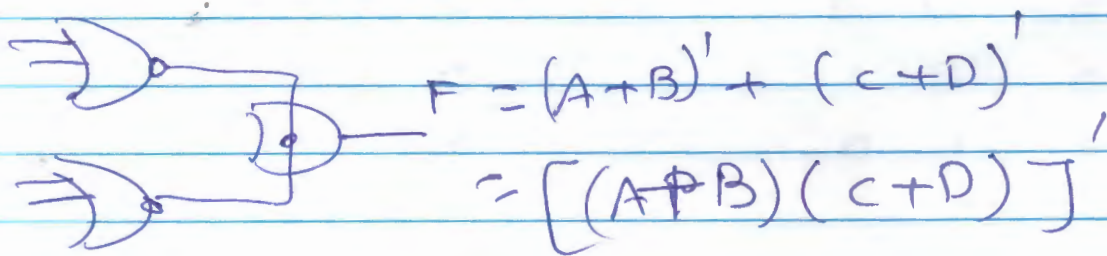 F = (A+B)' + (C+D)'
= [(A+B)(C+D)]'